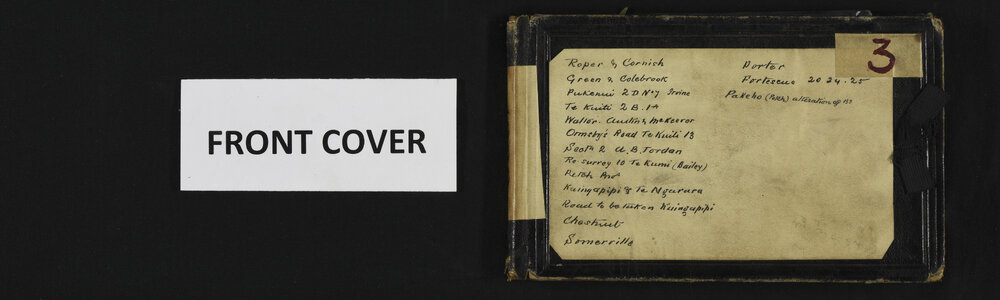 FRONT COVER
3
Roper & Cornish
Green & Colebrook
Pukenui 2 D No 7 Irvine
Te Kuiti 2 B. 1A
Waller. Austin & McKeever
Ormsby's Road Te Kuiti 13
Sectn 2 A. B. Jordan
Re survey 10 Te Kumi (Bailey)
Petch
Kaingapipi & Te Ngarara
Road to be taken Kaingapipi
Chestnut
Somerville
Porter
Fortescue 20 24. 25
Pakeho (Petch) alteration of